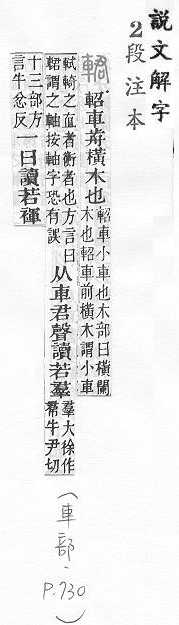 說文解字
2段注本
輑 軺車歬橫木也 軺車小車也木部曰橫闌木也軺車前橫木謂小車
軾輢之直者衡者也方言曰輑謂之軸按軸字恐有誤 从車君聲讀若羣 羣大徐作帬牛尹切
十三部方言牛忿反 一曰讀若褌
(車部, P.730)